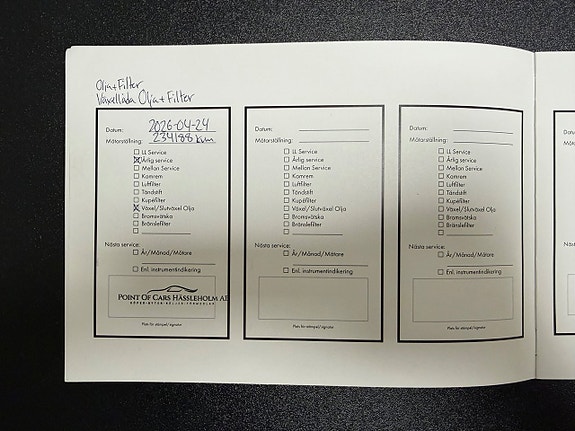 Olja+Filter
Växellåda Olja+Filter
Datum: 2026-04-24
Mätarställning: 234188 km
LL Service
Årlig service
Mellan Service
Kamrem
Luftfilter
Tändstift
Kupéfilter
Växel/Slutväxel Olja
Bromsvätska
Bränslefilter
Nästa service:
År/Månad/Mätare
Enl. instrumentindikering
POINT OF CARS HÄSSLEHOLM AB
Plats för stämpel/signatur
Datum:
Mätarställning:
LL Service
Årlig service
Mellan Service
Kamrem
Luftfilter
Tändstift
Kupéfilter
Växel/Slutväxel Olja
Bromsvätska
Bränslefilter
Nästa service:
År/Månad/Mätare
Enl. instrumentindikering
Plats för stämpel/signatur
Datum:
Mätarställning:
LL Service
Årlig service
Mellan Service
Kamrem
Luftfilter
Tändstift
Kupéfilter
Växel/Slutväxel Olja
Bromsvätska
Bränslefilter
Nästa service:
År/Månad/Mätare
Enl. instrumentindikering
Plats för stämpel/signatur
Datum:
Mätarställ
Nästa service: